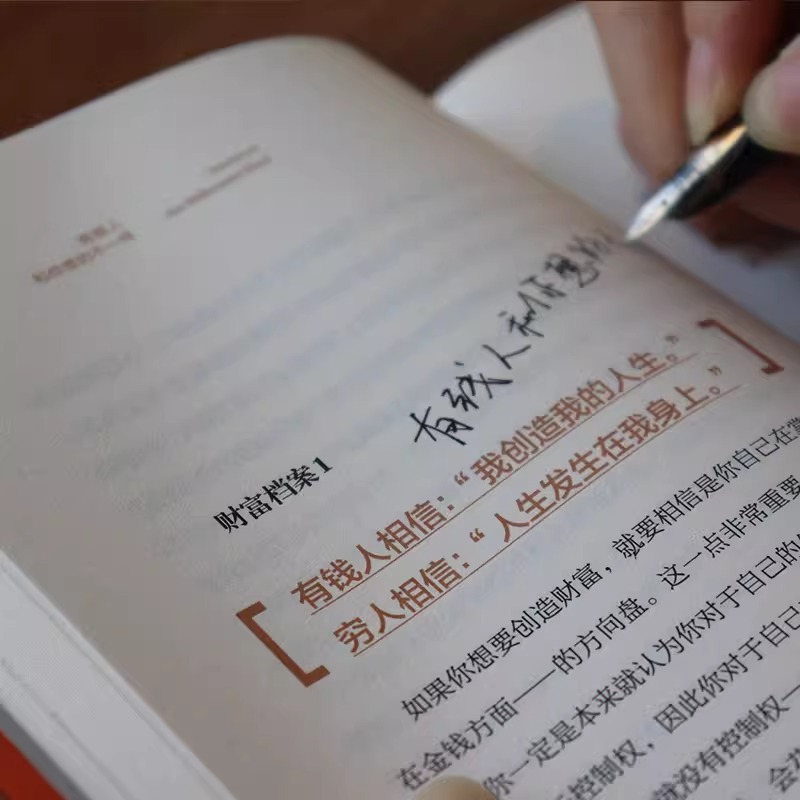 有钱人和你想的
财富档案1
有钱人相信：“我创造我的人生。”
穷人相信：“人生发生在我身上。”
如果你想要创造财富，就要相信是你自己在掌
在金钱方面——的方向盘。这一点非常重要
你一定是本来就认为你对于自己的
控制权，因此你对于自己
就没有控制权——
会花